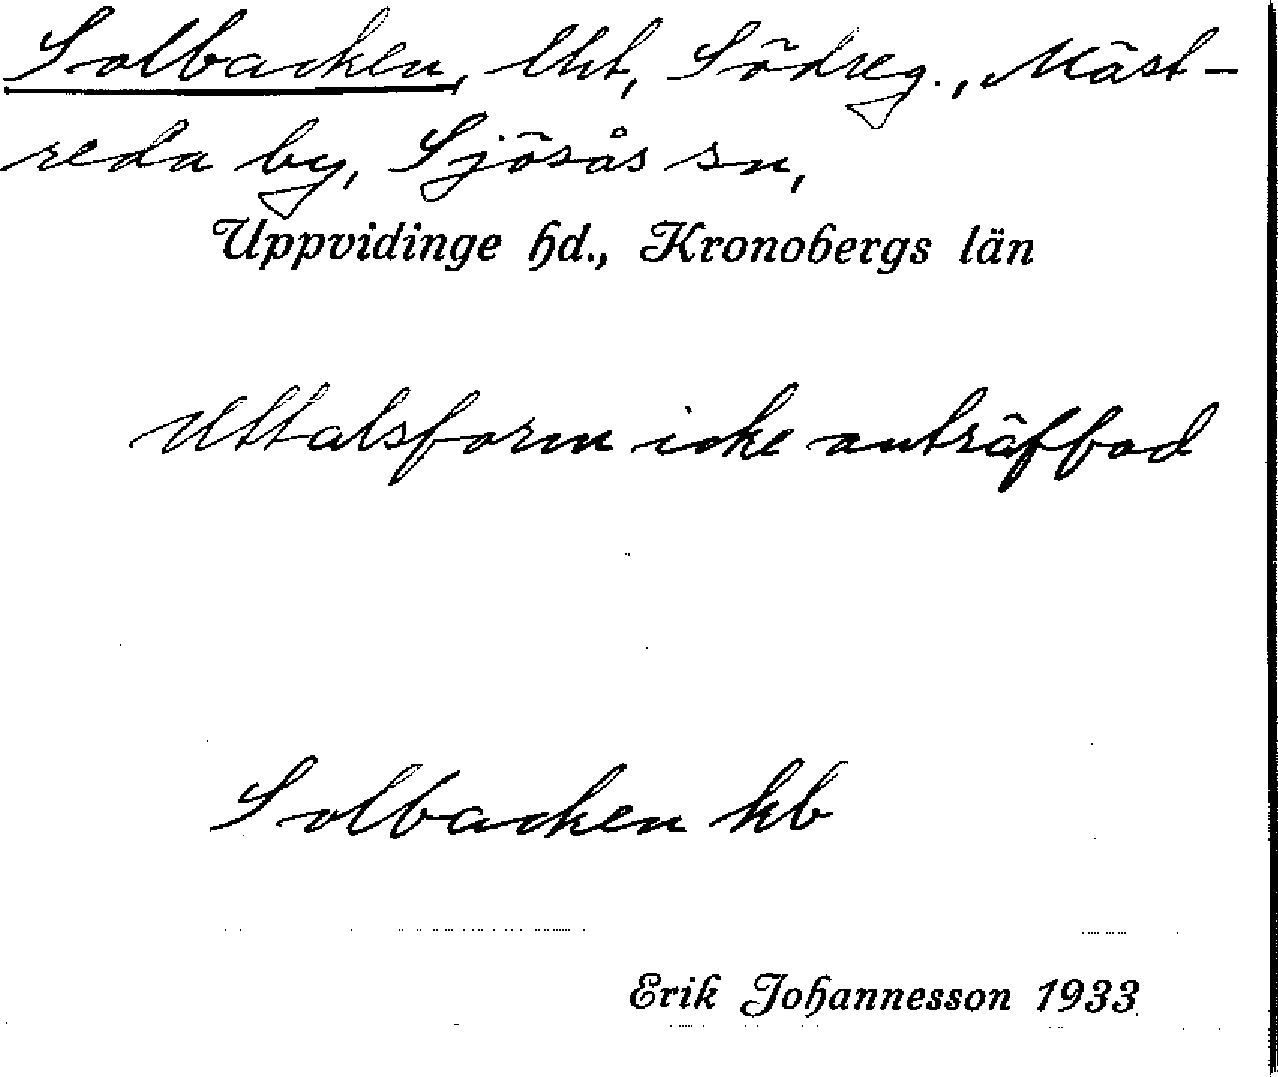 Solbacken, lht, Södreg., Mäst-
reda by, Sjösås sn,
Uppvidinge hd., Kronobergs län
Uttalsform icke anträffad
Solbacken kb
Erik Johannesson 1933